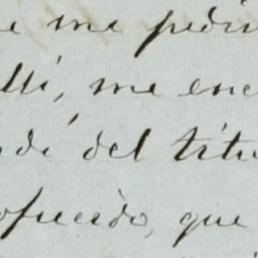 e me pedir
lli, me enc
ndé del títu
ofrecido, que